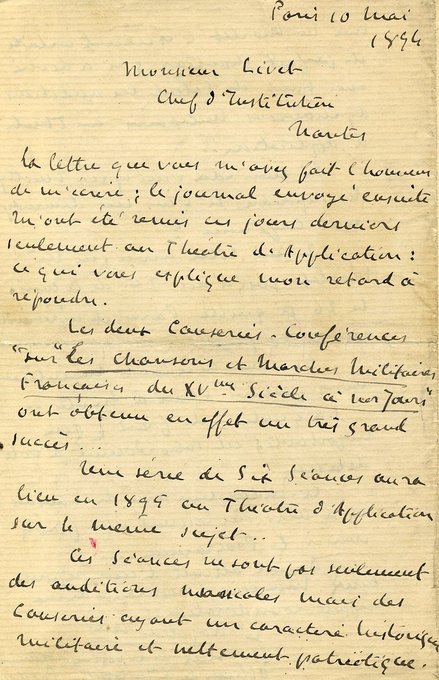 Paris 10 Mai
1894
Monsieur Livet
Chef d'Institution
Nantes
La lettre que vous m'avez fait l'honneur
de m'écrire ; le journal envoyé ensuite
m'ont été remis ces jours derniers
seulement au Théâtre d'Application :
ce qui vous explique mon retard à
répondre.
Les deux Causeries-Conférences
"sur" Les Chansons et Marches Militaires
Françaises du XVme Siècle à nos Jours"
ont obtenu en effet un très grand
succès...
Une série de Six Séances aura
lieu en 1895 au Théâtre d'Application
sur le même sujet...
Ces séances ne sont pas seulement
des auditions musicales mais des
Causeries ayant un caractère historique
militaire et nettement patriotique.